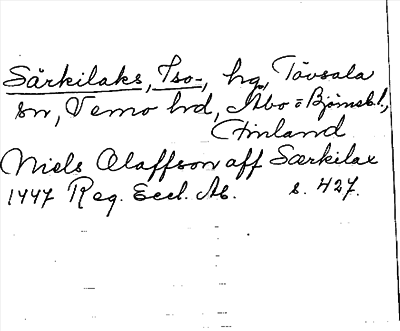 Särkilaks, Iso-, hg, Tövsala
sn, Vemo hd, Åbo o Björneb. l.,
Finland
Niels Olaffson aff Særkilax
1447 Reg. Eccl. Ab. s. 427.